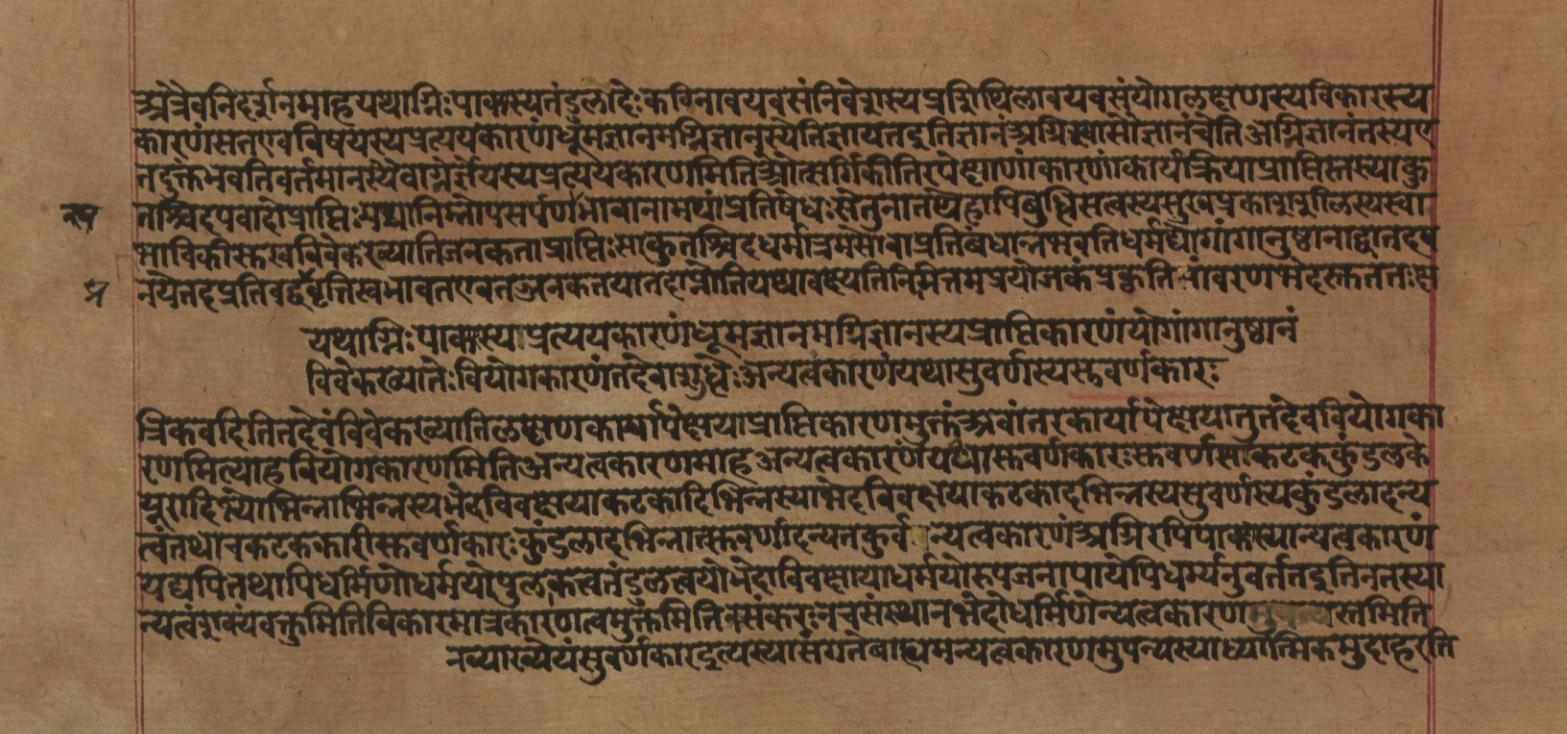 अत्रैवनिदर्शनमाहयथाग्निःपाक्यस्यतंडुलादेःकठिनावयवसंनिवेशस्यप्रशिथिलावयवसंयोगलक्षणस्यविकारस्य
कारणंसतएवविषयस्यप्रत्ययकारणंधूमज्ञानमग्निज्ञानस्येतिज्ञायतइतिज्ञानंअग्निश्चासौज्ञानंचेतिअग्निज्ञानंतस्यए
तदुक्तंभवतिवर्तमानस्यैवाग्नेर्ज्ञेयस्यप्रत्ययकारणमितिऔत्सर्गिकीतिरपेक्षाणांकारणांकार्यक्रियाप्राप्तिस्तस्याकु
तश्चिदपवादोप्राप्तिःयथानिम्नोपसर्पणभावानामपांप्रतिषेधःसेतुनातथेहापिबुद्धिसत्वस्यसुखप्रकाशशीलस्यस्वा
भाविकीसुखविवेकख्यातिजनकताप्राप्तिःसाकुतश्चिदधर्मात्तमसोवाप्रतिबंधान्नभवतिधर्माद्योगांगानुष्ठानाद्वातदप
नयेतदप्रतिबद्धवृत्तिस्वभावतएवतज्जनकतयातदाप्नोतियथावक्ष्यतिनिमित्तमप्रयोजकंप्रकृतिनांवरणभेदस्तुततःक्ष
यथाग्निःपाक्यस्यप्रत्ययकारणंधूमज्ञानमग्निज्ञानस्यप्राप्तिकारणंयोगांगानुष्ठानं
विवेकख्यातेःवियोगकारणंतदेवाशुद्धेःअन्यत्वकारणंयथासुवर्णस्यसुवर्णकारः
त्रिकवदितितदेवंविवेकख्यातिलक्षणकार्यापेक्षयाप्राप्तिकारणमुक्तंअवांतरकार्यापेक्षयातुतदेववियोगका
रणमित्याहवियोगकारणमितिअन्यत्वकारणमाहअन्यत्वकारणंयथासुवर्णकारःसुवर्णस्यकटककुंडलके
यूरादिभ्योभिन्नाभिन्नस्यभेदविवक्षयाकटकादिभिन्नस्याभेदविवक्षयाकटकादभिन्नस्यसुवर्णस्यकुंडलादन्य
त्वंतथाचकटककारीसुवर्णकारःकुंडलादभिन्नात्सुवर्णादन्यतकुर्वन्नन्यत्वकारणंअग्निरपिपाक्यस्यान्यत्वकारणं
यद्यपितथापिधर्मिणोधर्मयोपुलाकत्वतंडुलत्वयोर्भेदाविवक्षायाधर्मयोरुपजनापायेपिधर्म्यनुवर्ततइतिनतस्या
न्यत्वंशक्यंवक्तुमितिविकारमात्रकारणत्वमुक्तमितिनसंकरःनचसंस्थानभेदोधर्मिणोन्यत्वकारणस्तमिति
नव्याख्येयंसुवर्णकारइत्यस्यासंगतेबाह्यमन्यत्वकारणमुपन्यस्याध्यात्मिकमुदाहरति